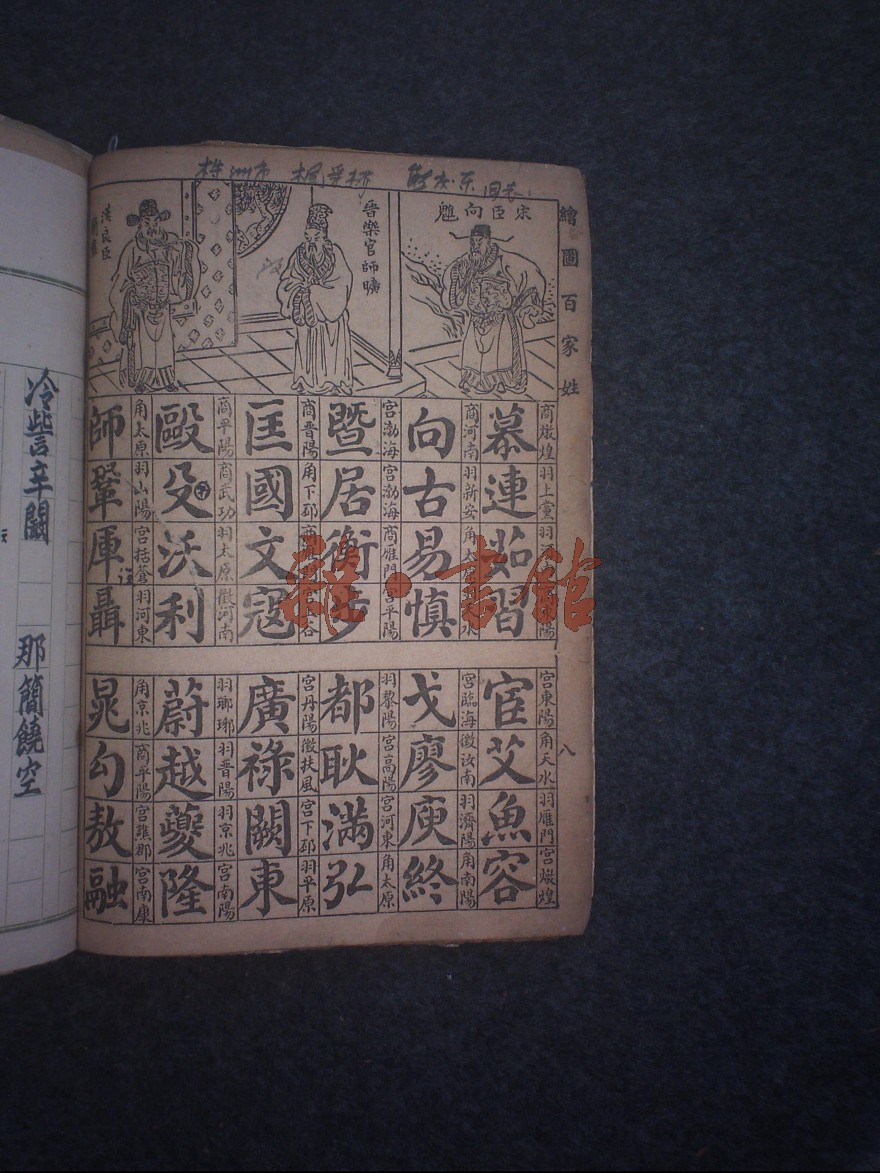 株洲市
繪圖百家姓
八
宋臣向魋
晉樂官師曠
漢良臣
商燉煌 羽上黨
慕連茹習
商河南 羽新安
向古易慎
宮渤海 宮渤海 商雁門 宮平陽
暨居衡步
商晉陽 角下邳
匡國文寇
商平陽 商武功 羽太原 徵河南
毆殳沃利
角太原 羽山陽 宮括蒼 羽河東
師鞏厙聶
宮東陽 角天水 羽雁門 宮燉煌
宦艾魚容
宮臨海 徵汝南 羽濟陽 角南陽
戈廖庾終
羽黎陽 宮高陽 宮河東 角太原
都耿滿弘
宮丹陽 徵扶風 宮下邳 羽平原
廣祿闕東
羽瑯琊 羽晉陽 羽京兆 宮南陽
蔚越夔隆
角京兆 商平陽 宮譙郡 宮南康
晁勾敖融
冷訾辛闞
那簡饒空
雜·書館